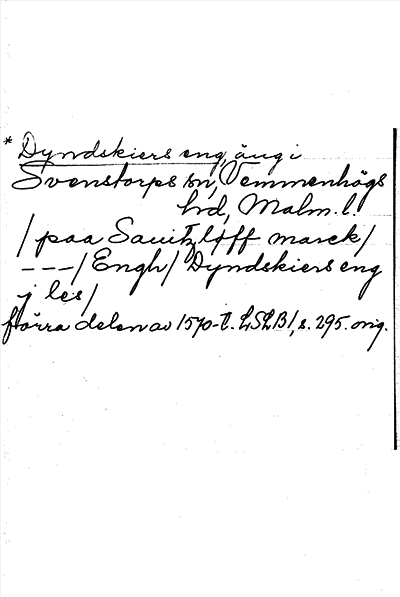 * Dyndskiers eng, äng i
Svenstorps sn, Vemmenhögs
hd, Malm. l.
/ paa Sauitzløff marck/
---/ Engh/ Dyndskiers eng
j les/
förra delen av 1570-t. LSLB1, s. 295. orig.